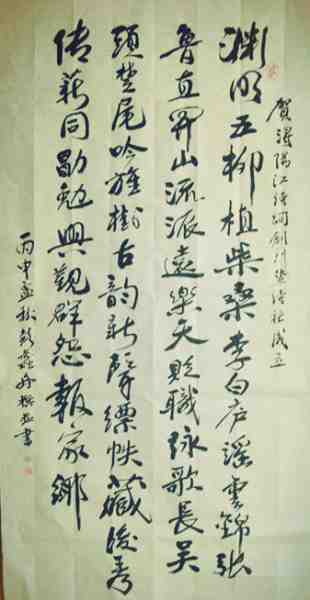 賀潯陽江詩詞創刊暨詩社成立
淵明五柳植柴桑李白庐谣雲錦張
魯直開山流派遠樂天貶職詠歌長吴
頭楚尾吟旌樹古韵新聲縹帙藏後秀
传薪同勖勉興觀群怨報家鄉
丙申孟秋彭蠡並書